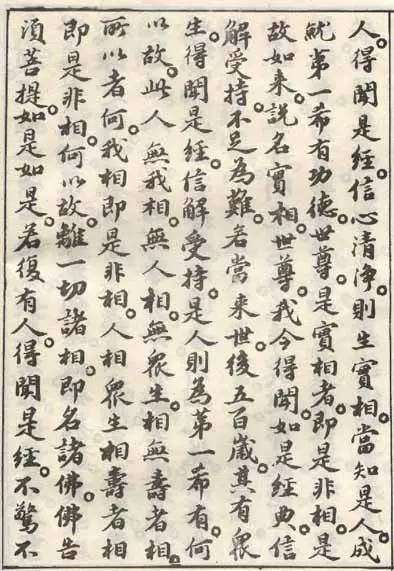 人。得聞是經。信心清淨。則生實相。當知是人。成
就第一希有功德。世尊。是實相者。即是非相。是
故如來。說名實相。世尊。我今得聞。如是經典。信
解受持。不足為難。若當來世。後五百歲。其有眾
生。得聞是經。信解受持。是人則為第一希有。何
以故。此人無我相。無人相。無眾生相。無壽者相。
所以者何。我相即是非相。人相眾生相壽者相
即是非相。何以故。離一切諸相。即名諸佛。佛告
須菩提。如是如是。若復有人。得聞是經。不驚不